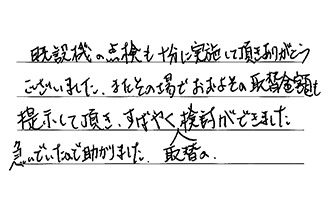 既設機の点検も十分に実施して頂きありがとう
ございました。またその場でおおよその取替金額も
提示して頂き、すばやく取替の検討ができました。
急いでいたので助かりました。